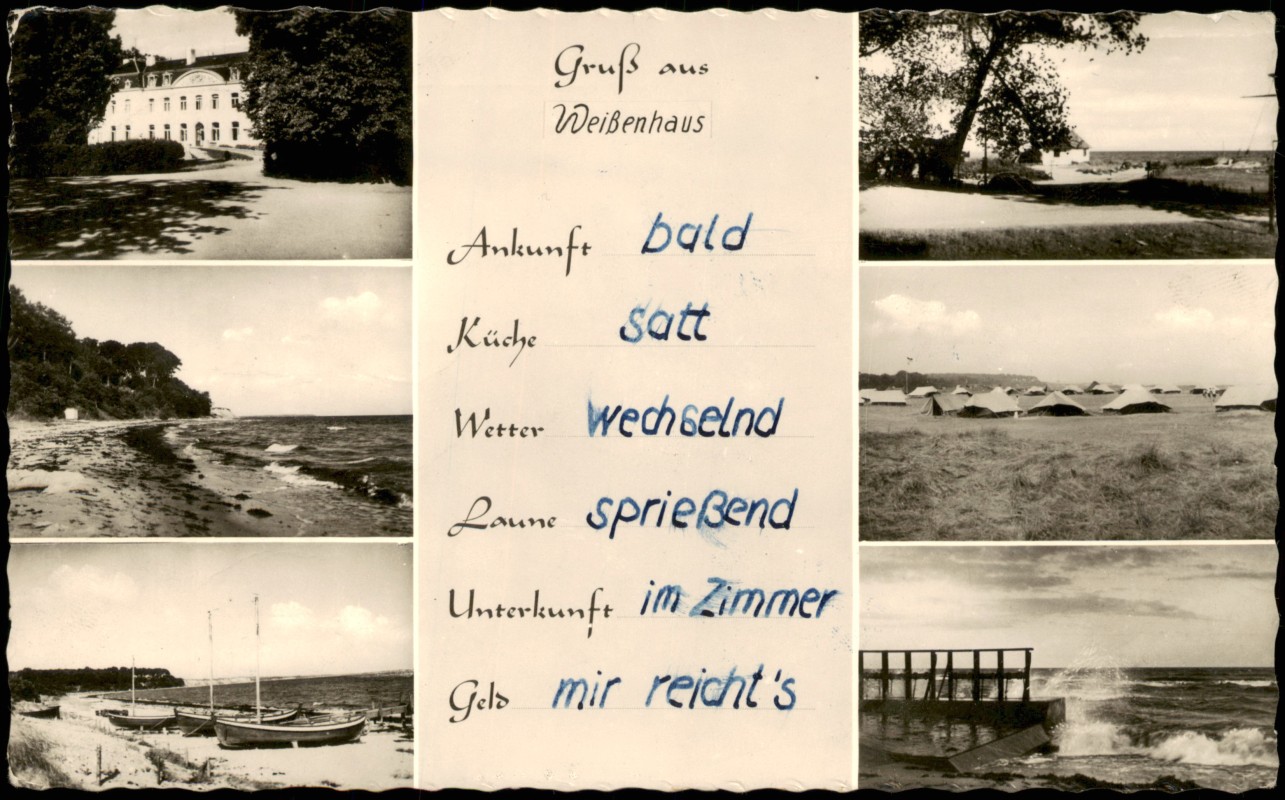 Gruß aus
Weißenhaus
Ankunft bald
Küche satt
Wetter wechselnd
Laune sprießend
Unterkunft im Zimmer
Geld mir reicht's